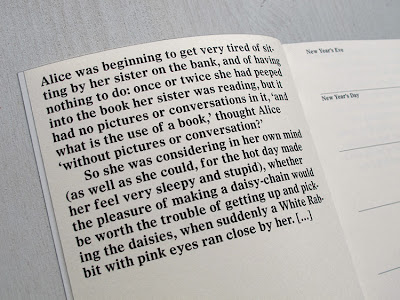 Alice was beginning to get very tired of sit-
ting by her sister on the bank, and of having
nothing to do: once or twice she had peeped
into the book her sister was reading, but it
had no pictures or conversations in it, ‘and
what is the use of a book,’ thought Alice
‘without pictures or conversation?’
So she was considering in her own mind
(as well as she could, for the hot day made
her feel very sleepy and stupid), whether
the pleasure of making a daisy-chain would
be worth the trouble of getting up and pick-
ing the daisies, when suddenly a White Rab-
bit with pink eyes ran close by her. [...]
New Year's Eve
New Year's Day